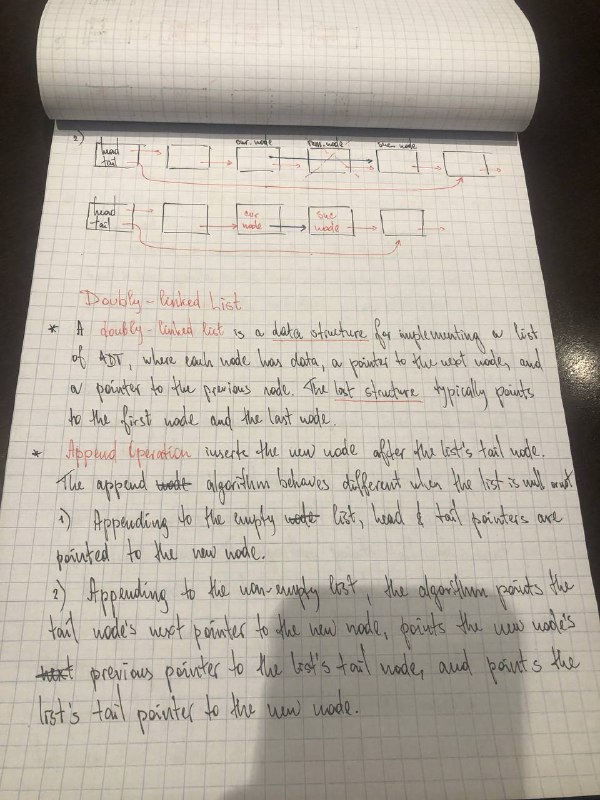 2)
head
tail
cur. node
rem. node
suc. node
head
tail
cur
node
suc
node
Doubly-linked List
* A doubly-linked list is a data structure for implementing a list
of ADT, where each node has data, a pointer to the next node, and
a pointer to the previous node. The last structure typically points
to the first node and the last node.
* Append Operation inserts the new node after the list's tail node.
The append node algorithm behaves different when the list is null or not
1) Appending to the empty node list, head & tail pointers are
pointed to the new node.
2) Appending to the non-empty list, the algorithm points the
tail node's next pointer to the new node, points the new node's
next previous pointer to the list's tail node, and points the
list's tail pointer to the new node.